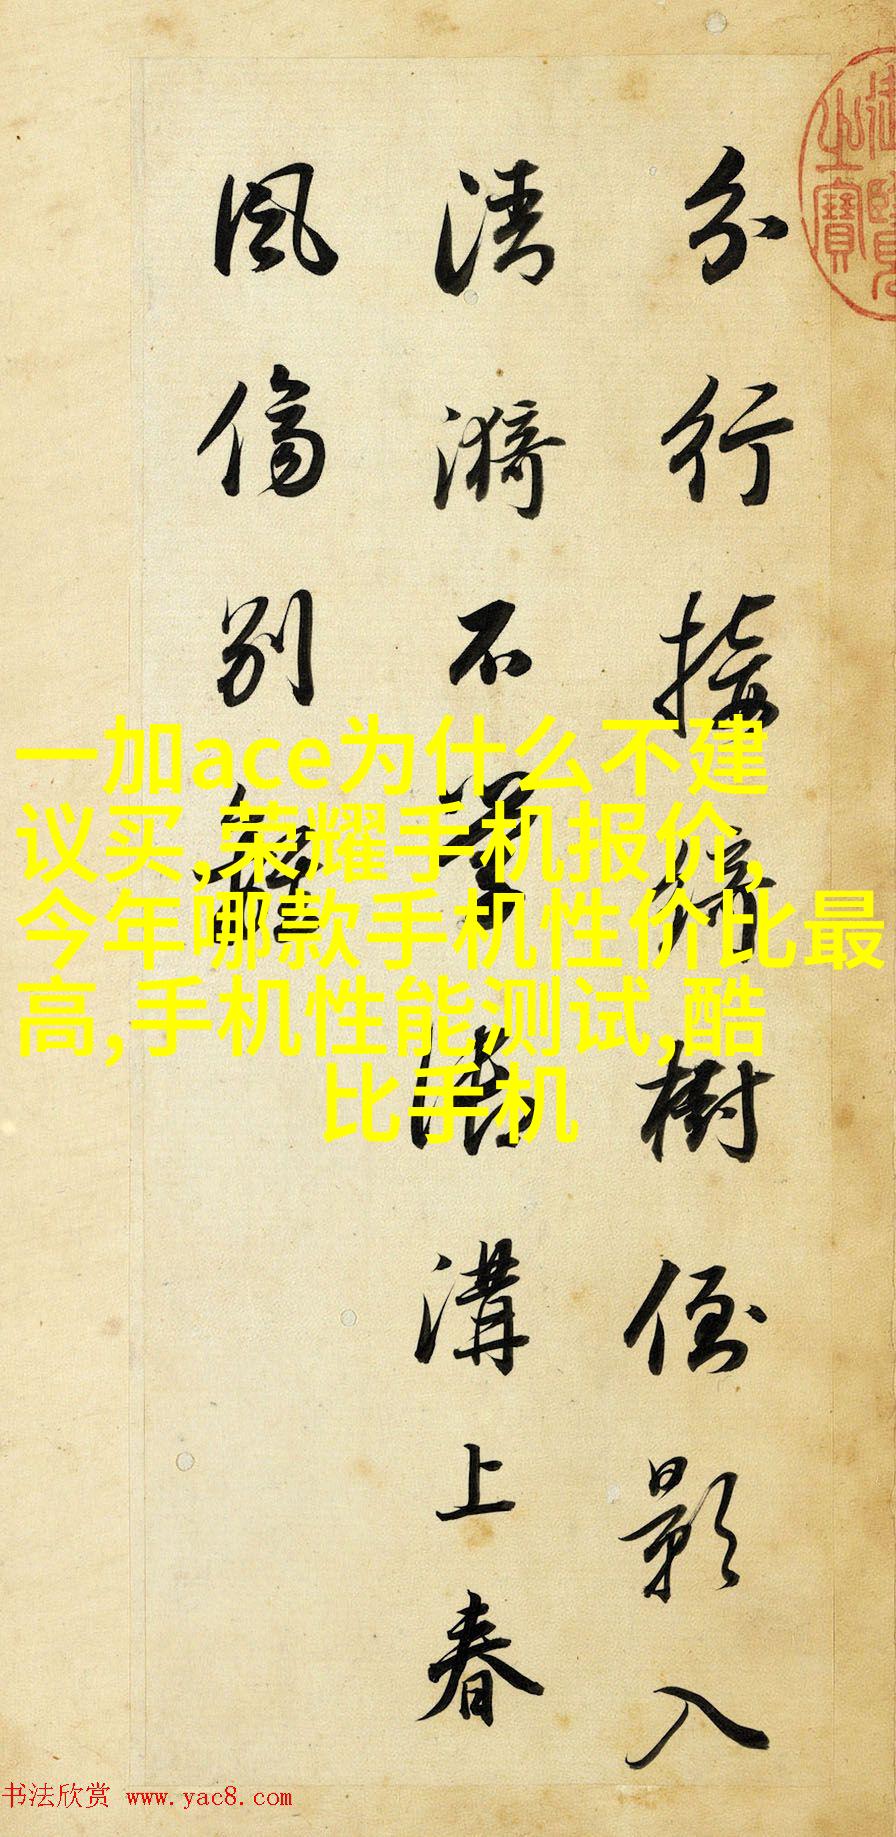 分行接綺樹倒影入
清漪不學御溝上春
風傷別離
一加ace为什么不建
议买,荣耀手机报价,
今年哪款手机性价比最
高,手机性能测试,酷
比手机
之寶
书法欣赏 www.yac8.com